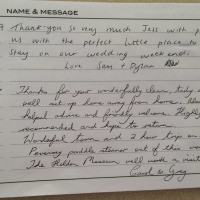 NAME & MESSAGE
Thank you so very much Jess with p
us with the perfect little place to
stay on our wedding weekend.
Love Sam & Dylan
Thanks for your wonderfully clean, tidy &
well set up home away from home. 
helped advice and friendly welcome. Highly
recommended and hope to return.
Wonderful town and 2 hour trip on
Pevensey paddle steamer out of this wor
The Holden Museum well worth a visit
Carol & Greg